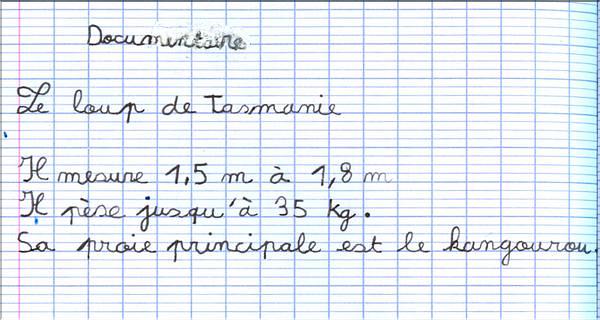 Documentaire
Le loup de Tasmanie
Il mesure 1,5 m à 1,8 m
Il pèse jusqu'à 35 kg.
Sa proie principale est le kangourou.